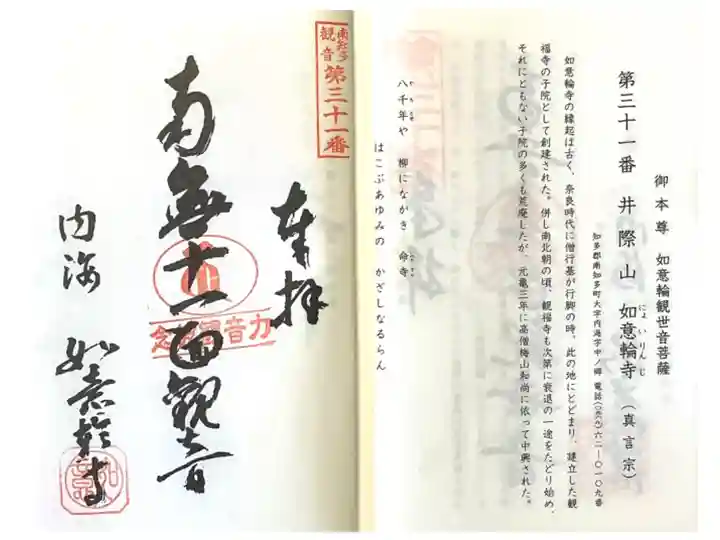 御本尊 如意輪観世音菩薩
第三十一番 井際山 如意輪寺（真言宗）
にょいりんじ
知多郡南知多町大字内海字中ノ郷 電話(〇五六九)六二―〇一〇九番
如意輪寺の縁起は古く、奈良時代に僧行基が行脚の時、此の地にとどまり、建立した観
福寺の子院として創建された。併し南北朝の頃、観福寺も次第に衰退の一途をたどり始め、
それにともない子院の多くも荒廃したが、元亀三年に高僧梅山和尚に依って中興された。
八千年や 柳にながき 命寺
はこぶあゆみの かざしなるらん
南知多
観音
第三十一番
奉拝
南無十一面観音
内海 如意輪寺